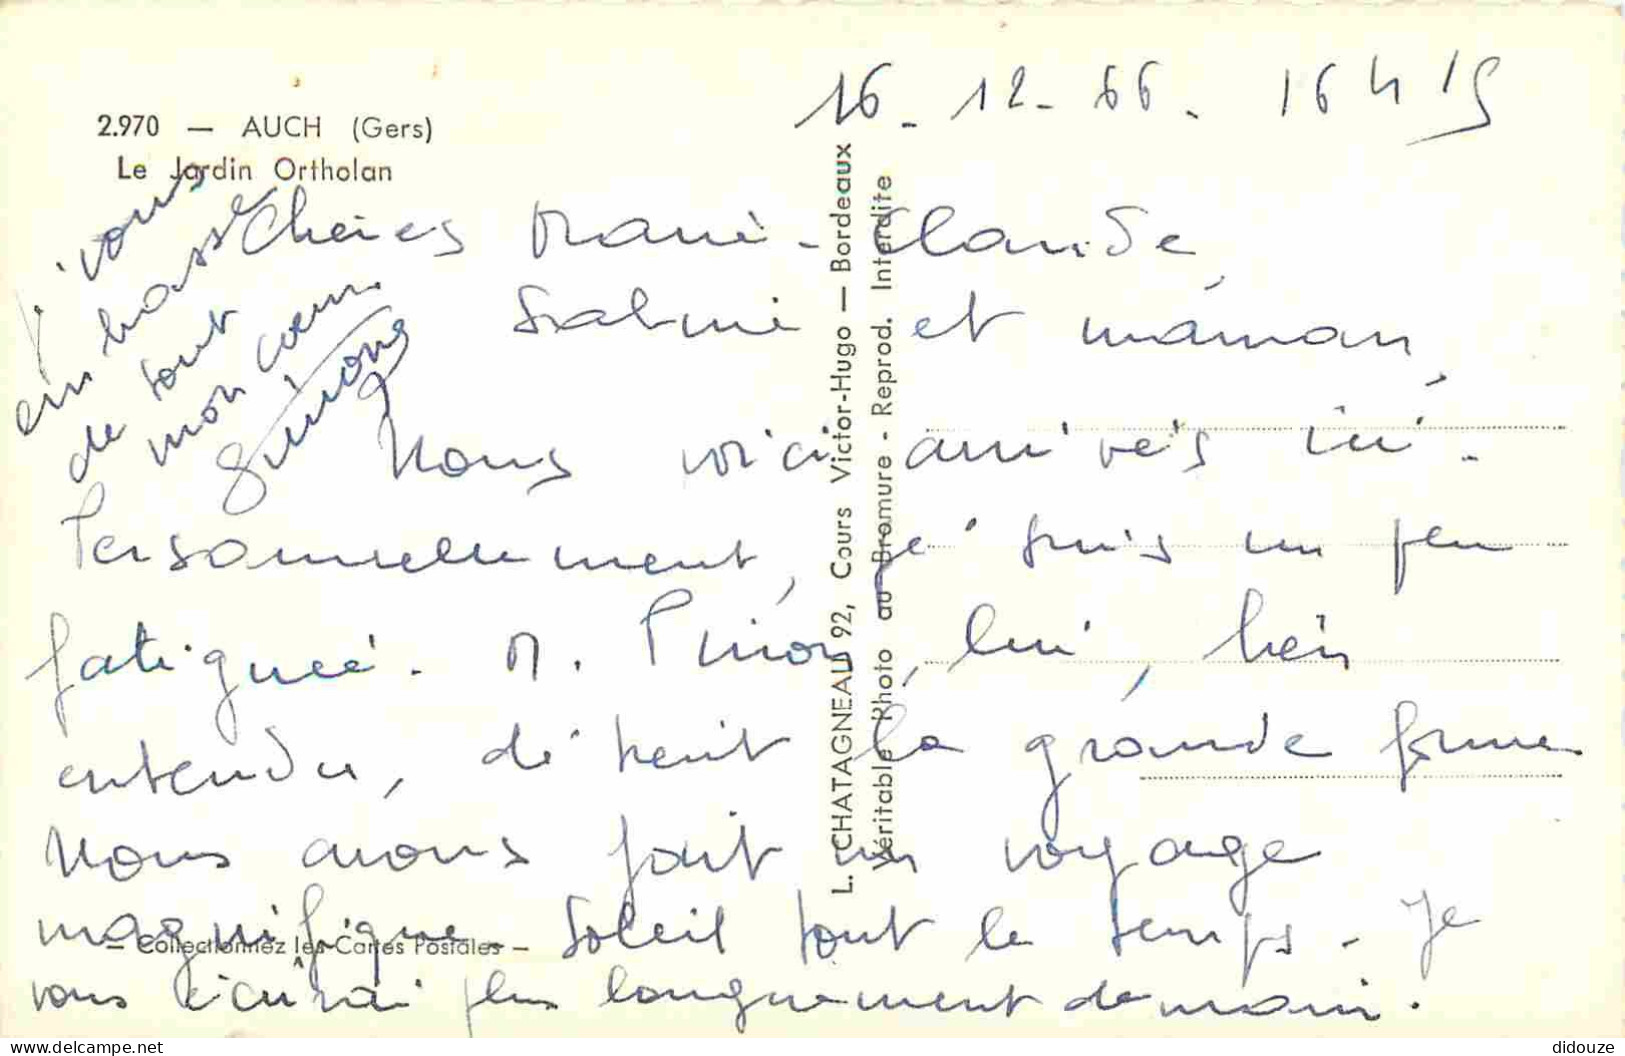 16 - 12 - 66 - 16 h 15
2.970 — AUCH (Gers)
Le Jardin Ortholan
Chères Marie-Claude,
et maman,
Nous voici arrivés ici.
Personnellement, je suis un peu
fatiguée. M. Pinon, lui, bien
entendu, détient la grande forme
Nous avons fait un voyage
magnifique. Soleil tout le temps. Je
vous écrirai plus longuement demain.
vous
embrasse
de tout
mon coeur
L. CHATAGNEAU 92, Cours Victor-Hugo — Bordeaux
Véritable Photo au Bromure - Reprod. Interdite
— Collectionnez les Cartes Postales —
delcampe.net
didouze